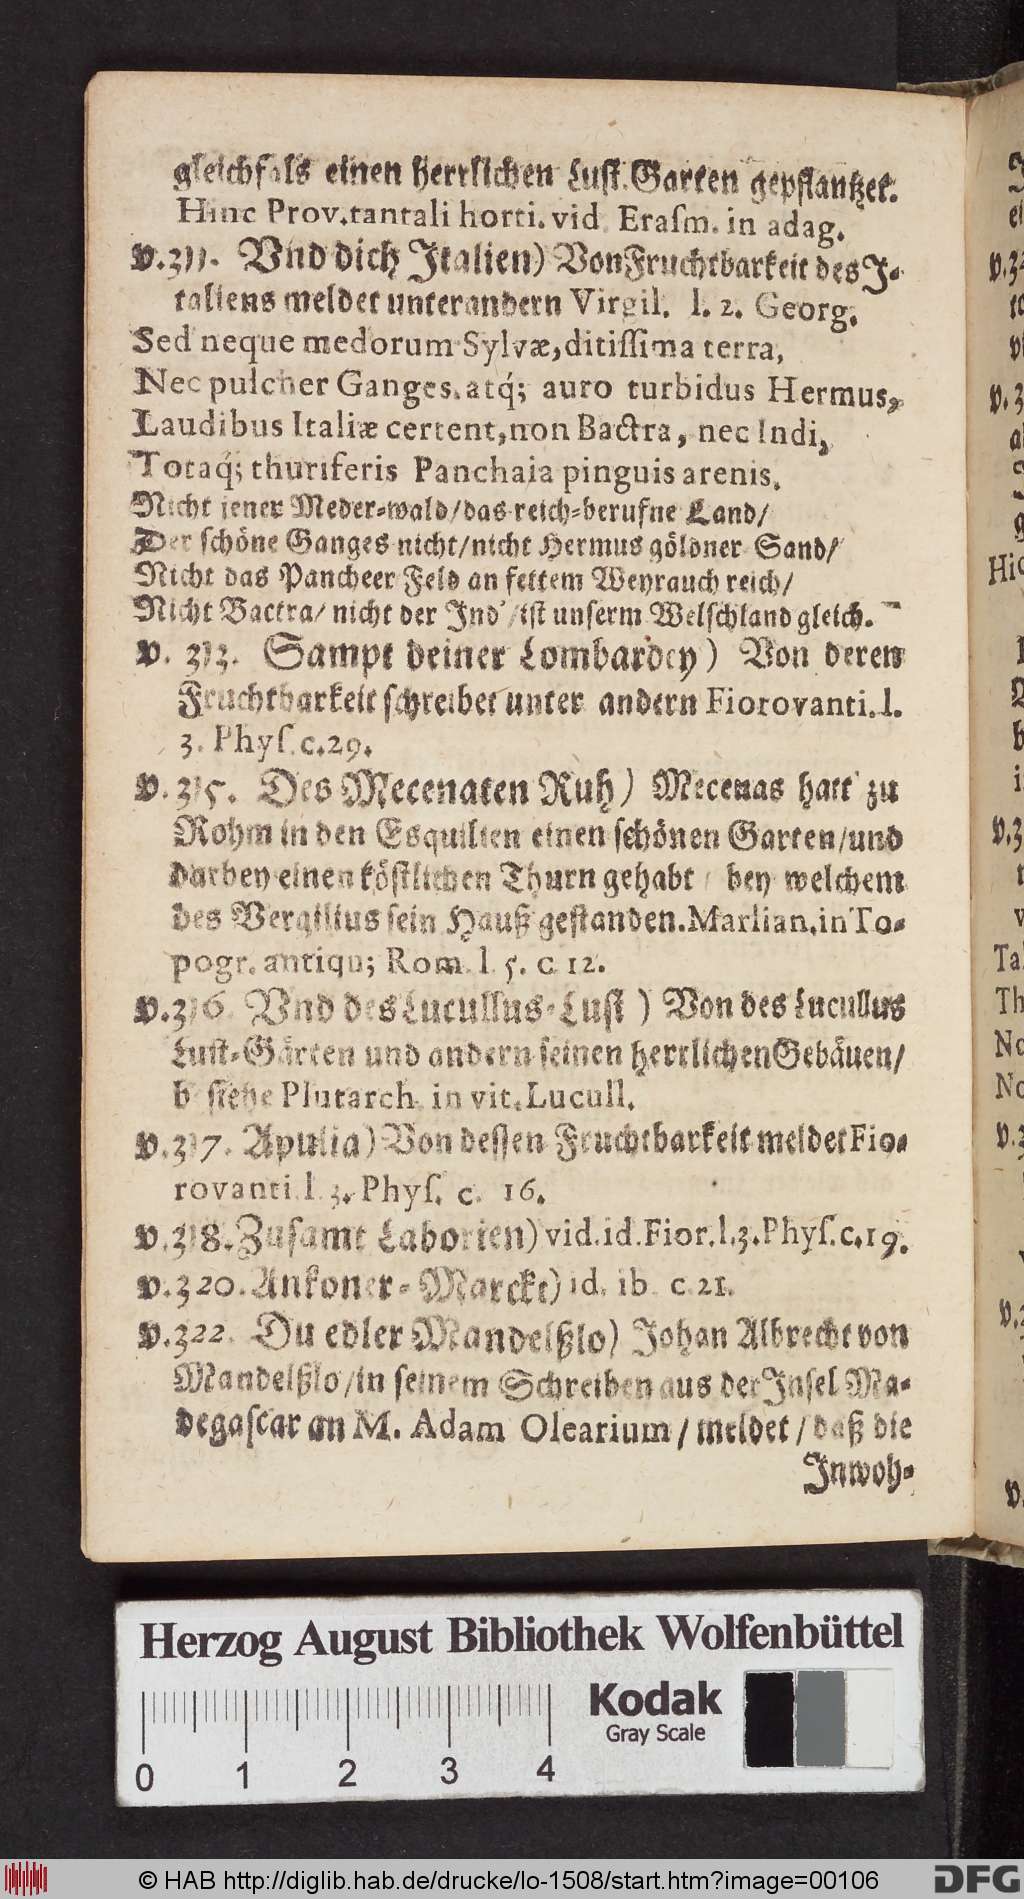 gleichfals einen herrlichen Lust-Garten gepflantzet.
Hinc Prov. tantali horti. vid. Erasm. in adag.
v. 311. Vnd dich Italien) Von Fruchtbarkeit des I-
taliens meldet unter andern Virgil. l. 2. Georg.
Sed neque medorum Sylvæ, ditissima terra,
Nec pulcher Ganges, atq́; auro turbidus Hermus,
Laudibus Italiæ certent, non Bactra, nec Indi,
Totaq́; thuriferis Panchaia pinguis arenis.
Nicht jener Meder-wald/das reich-berufne Land/
Der schöne Ganges nicht/nicht Hermus göldner Sand/
Nicht das Pancheer Feld an fettem Weyrauch reich/
Nicht Bactra/ nicht der Ind'/ist unserm Welschland gleich.
v. 313. Sampt deiner Lombardey) Von deren
Fruchtbarkeit schreibet unter andern Fiorovanti. l.
3. Phys. c. 29.
v. 315. Des Mecenaten Ruh) Mecenas hatt' zu
Rohm in den Esquilien einen schönen Garten/und
darbey einen köstlichen Thurn gehabt / bey welchem
des Vergilius sein Hauß gestanden. Marlian. in To-
pogr. antiqu; Rom. l. 5. c. 12.
v. 316. Vnd des Lucullus-Lust) Von des Lucullus
Lust-Gärten und andern seinen herrlichen Gebäuen/
besiehe Plutarch. in vit. Lucull.
v. 317. Apulia) Von dessen Fruchtbarkeit meldet Fio-
rovanti l. 3. Phys. c. 16.
v. 318. Zusamt Laborien) vid. id. Fior. l. 3. Phys. c. 19.
v. 320. Ankoner-Marckt) id. ib. c. 21.
v. 322. Du edler Mandelßlo) Johan Albrecht von
Mandelßlo/in seinem Schreiben aus der Insel Ma-
degascar an M. Adam Olearium / meldet / daß die
Inwoh-
Herzog August Bibliothek Wolfenbüttel
Kodak
Gray Scale
0 1 2 3 4
© HAB http://diglib.hab.de/drucke/lo-1508/start.htm?image=00106
DFG